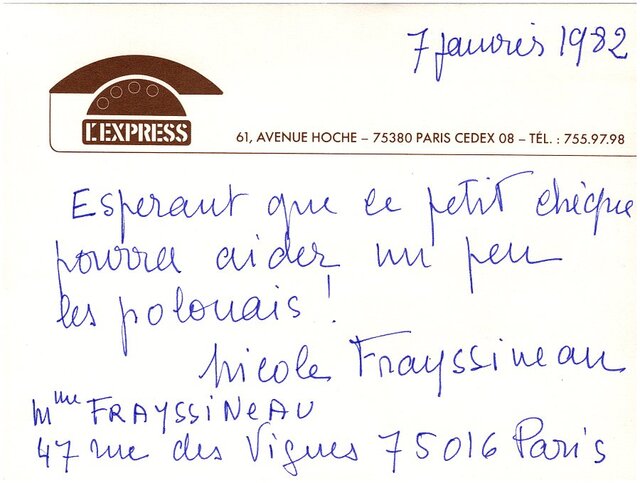 7 janvier 1982
L'EXPRESS
61, AVENUE HOCHE – 75380 PARIS CEDEX 08 – TÉL. : 755.97.98
Esperant que ce petit chèque
pourra aider un peu
les polonais !
Nicole Frayssineau
Mme FRAYSSINEAU
47 rue des Vignes 75016 Paris